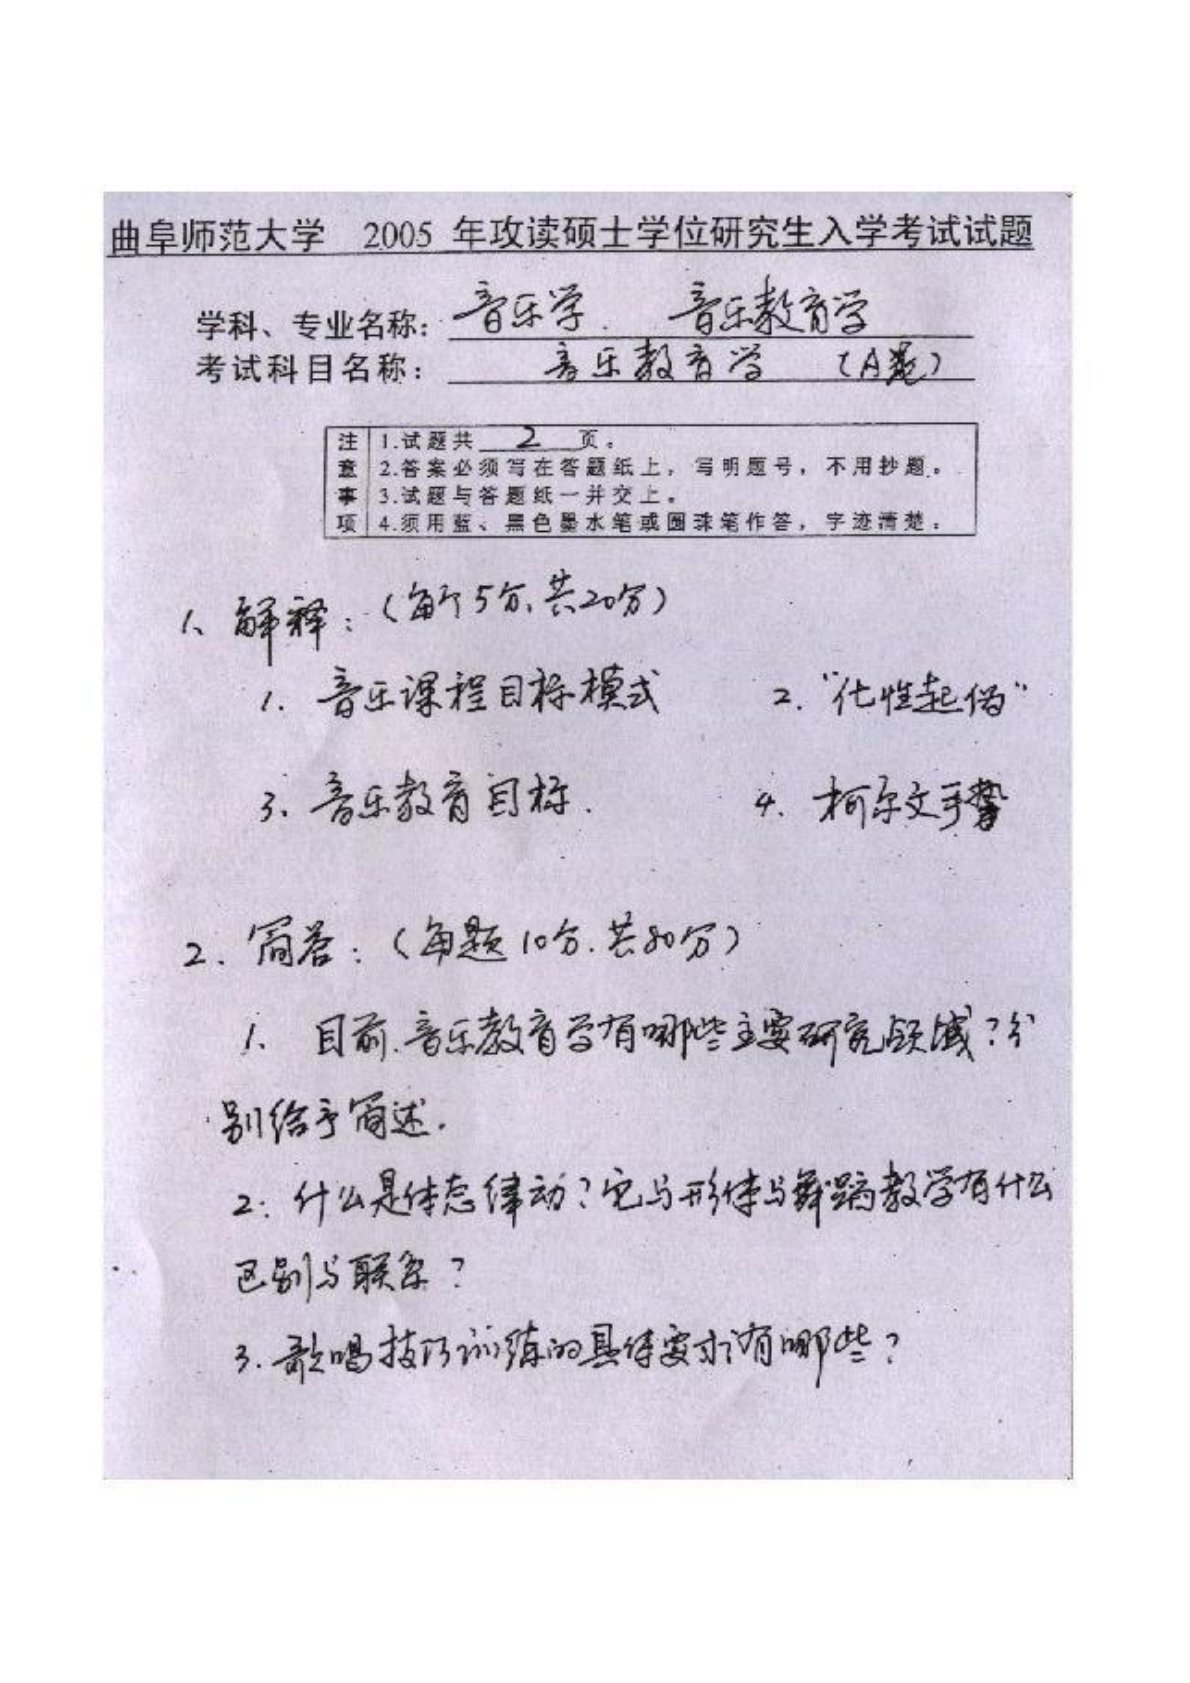 曲阜师范大学 2005 年攻读硕士学位研究生入学考试试题
学科、专业名称: 音乐学. 音乐教育学
考试科目名称: 音乐教育学 (A卷)
注意事项
1.试题共 2 页。
2.答案必须写在答题纸上，写明题号，不用抄题。
3.试题与答题纸一并交上。
4.须用蓝、黑色墨水笔或圆珠笔作答，字迹清楚。
1、解释:(每个5分、共20分)
1. 音乐课程目标模式 2. "化性起伪"
3、音乐教育目标. 4. 柯尔文手势
2. 简答:(每题10分.共80分)
1、目前.音乐教育学有哪些主要研究领域?分
别给予简述.
2: 什么是体态律动?它与形体与舞蹈教学有什么
区别与联系?
3. 歌唱技巧训练的具体要求有哪些?